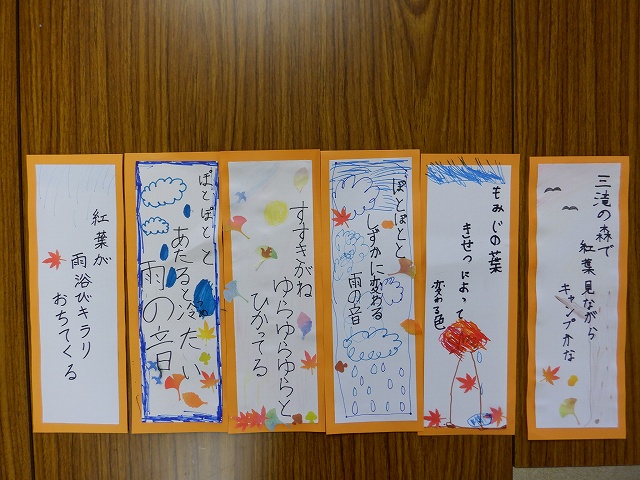 三滝の森で
紅葉見ながら
キャンプかな
もみじの葉
きせつによって
変わる色
ぽとぽとと
しずかに変わる
雨の音
すすきがね
ゆらゆらゆらと
ひかってる
ぽとぽとと
あたると冷たい
雨の音
紅葉が
雨浴びキラリ
おちてくる